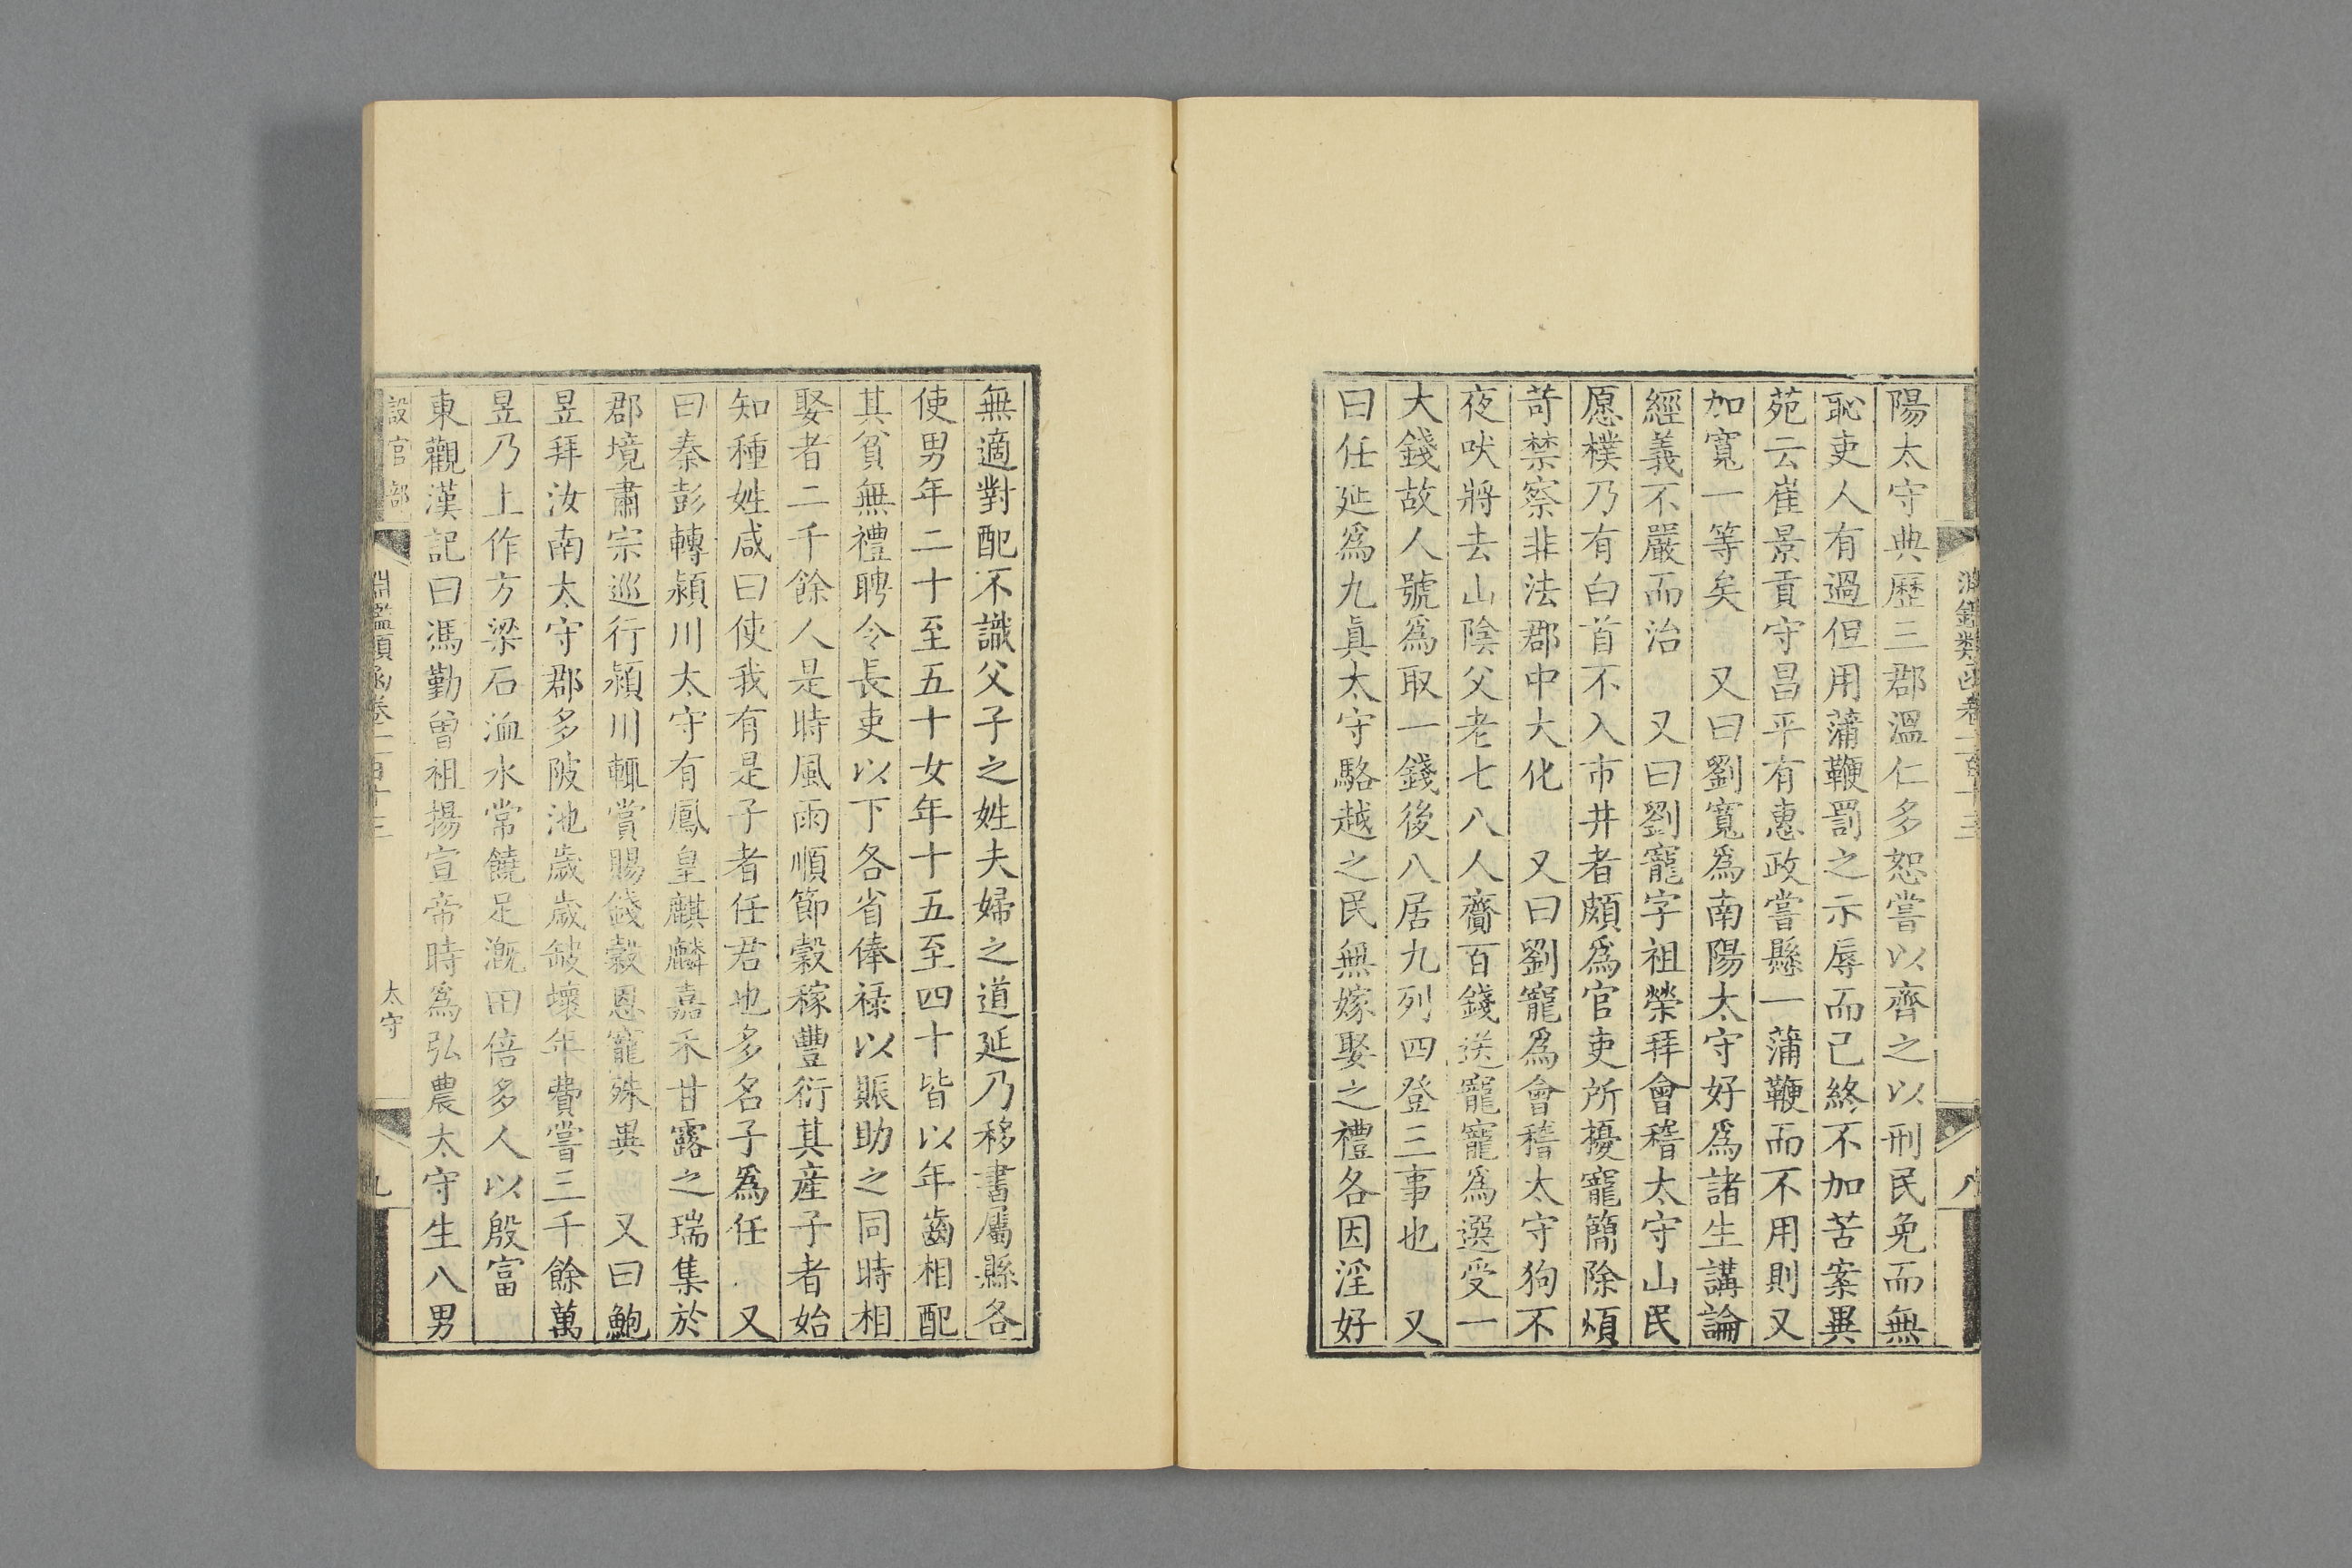 淵鑑類函卷二百十三
八
陽太守典歷三郡溫仁多恕嘗以齊之以刑民免而無
恥吏人有過但用蒲鞭罰之示辱而已終不加苦案異
苑云崔景貢守昌平有惠政嘗懸一蒲鞭而不用則又
加寬一等矣　又曰劉寬爲南陽太守好爲諸生講論
經義不嚴而治　又曰劉寵字祖榮拜會稽太守山民
愿樸乃有白首不入市井者頗爲官吏所擾寵簡除煩
苛禁察非法郡中大化　又曰劉寵爲會稽太守狗不
夜吠將去山陰父老七八人齎百錢送寵寵爲選受一
大錢故人號爲取一錢後八居九列四登三事也　又
曰任延爲九眞太守駱越之民無嫁娶之禮各因淫好
無適對配不識父子之姓夫婦之道延乃移書屬縣各
使男年二十至五十女年十五至四十皆以年齒相配
其貧無禮聘令長吏以下各省俸祿以賑助之同時相
娶者二千餘人是時風雨順節穀稼豐衍其產子者始
知種姓咸曰使我有是子者任君也多名子爲任　又
曰秦彭轉潁川太守有鳳皇麒麟嘉禾甘露之瑞集於
郡境肅宗巡行潁川輒賞賜錢穀恩寵殊異　又曰鮑
昱拜汝南太守郡多陂池歲歲缺壞年費嘗三千餘萬
昱乃上作方梁石洫水常饒足漑田倍多人以殷富
東觀漢記曰馮勤曾祖揚宣帝時爲弘農太守生八男
設官部
淵鑑類函卷二百十三
太守
九